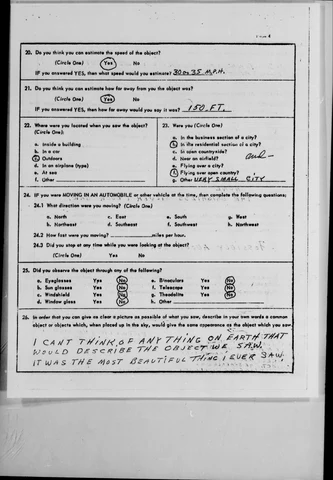 20. Do you think you can estimate the speed of the object?
(Circle One) Yes No
IF you answered YES, then what speed would you estimate? 30 or 35 M.P.H.
21. Do you think you can estimate how far away from you the object was?
(Circle One) Yes No
IF you answered YES, then how far away would you say it was? 150 FT.
22. Where were you located when you saw the object?
(Circle One):
a. Inside a building
b. In a car
c. Outdoors
d. In an airplane (type)
e. At sea
f. Other
23. Were you (Circle One)
a. In the business section of a city?
b. In the residential section of a city?
c. In open countryside? and
d. Near an airfield?
e. Flying over a city?
f. Flying over open country?
g. Other VERY SMALL CITY
24. IF you were MOVING IN AN AUTOMOBILE or other vehicle at the time, then complete the following questions:
24.1 What direction were you moving? (Circle One)
a. North c. East e. South g. West
b. Northeast d. Southeast f. Southwest h. Northwest
24.2 How fast were you moving? miles per hour.
24.3 Did you stop at any time while you were looking at the object?
(Circle One) Yes No
25. Did you observe the object through any of the following?
a. Eyeglasses Yes No e. Binoculars Yes No
b. Sun glasses Yes No f. Telescope Yes No
c. Windshield Yes No g. Theodolite Yes No
d. Window glass Yes No h. Other
26. In order that you can give as clear a picture as possible of what you saw, describe in your own words a common
object or objects which, when placed up in the sky, would give the same appearance as the object which you saw.
I CANT THINK OF ANY THING ON EARTH THAT
WOULD DESCRIBE THE OBJECT WE SAW.
IT WAS THE MOST BEAUTIFUL THING I EVER SAW.